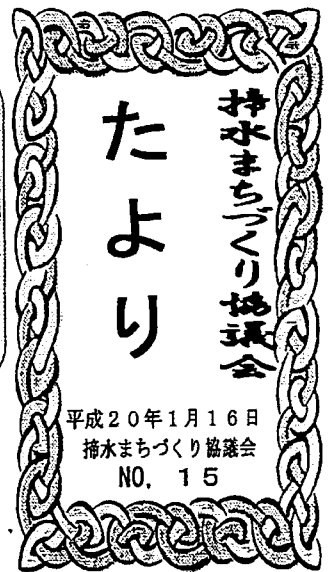 揥水まちづくり協議会
たより
平成20年1月16日
揥水まちづくり協議会
NO. 15